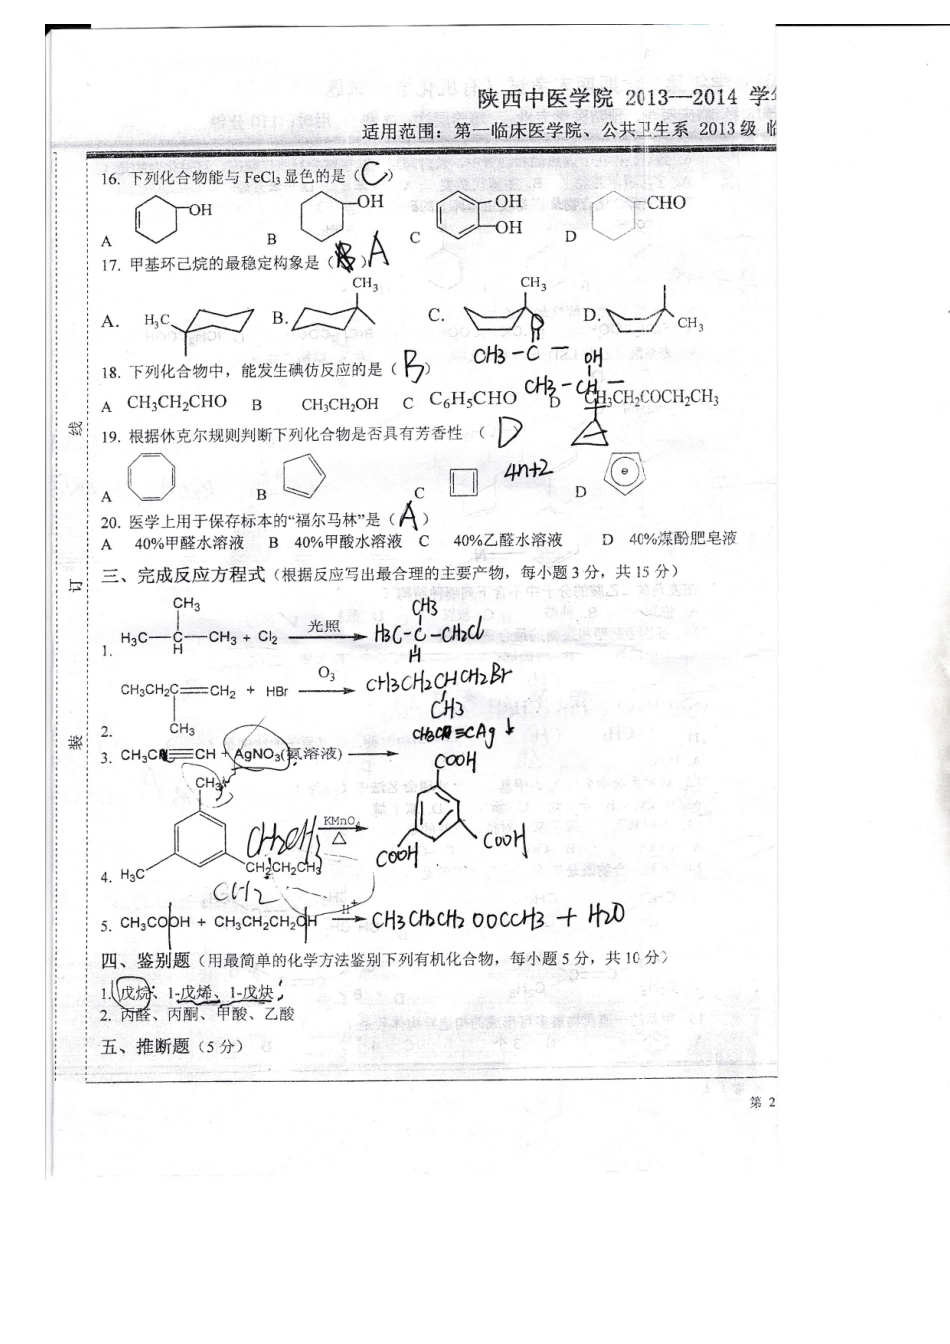 陕西中医学院 2013—2014 学
适用范围：第一临床医学院、公共卫生系 2013 级 临
16. 下列化合物能与 FeCl₃ 显色的是（C）
OH OH OH OH CHO
A B C D
17. 甲基环己烷的最稳定构象是（A
CH₃ CH₃
A. H₃C B. C. D. CH₃
CH3-C-
18. 下列化合物中，能发生碘仿反应的是（B）
OH
CH3-CH-
A CH₃CH₂CHO B CH₃CH₂OH C C₆H₅CHO D CH₃CH₂COCH₂CH₃
19. 根据休克尔规则判断下列化合物是否具有芳香性（D）
4n+2
A B C D
20. 医学上用于保存标本的“福尔马林”是（A）
A 40%甲醛水溶液 B 40%甲酸水溶液 C 40%乙醛水溶液 D 40%煤酚肥皂液
三、完成反应方程式（根据反应写出最合理的主要产物，每小题 3 分，共 15 分）
CH₃ CH3
1. H₃C—C—CH₃ + Cl₂ 光照 H3C-C-CH2Cl
H H
CH₃CH₂C=CH₂ + HBr O₃ CH3CH2CHCH2Br
2. CH₃ CH3
3. CH₃C≡CH + AgNO₃(氨溶液) ≡CAg↓
COOH
CH₃
KMnO₄
△
COOH COOH
4. H₃C CH₂CH₂CH₃
5. CH₃COOH + CH₃CH₂CH₂OH H⁺ CH3CH2CH2OOCCH3 + H2O
四、鉴别题（用最简单的化学方法鉴别下列有机化合物，每小题 5 分，共 10 分）
1. 戊烷、1-戊烯、1-戊炔
2. 丙醛、丙酮、甲酸、乙酸
五、推断题（5 分）
第 2
线
订
装